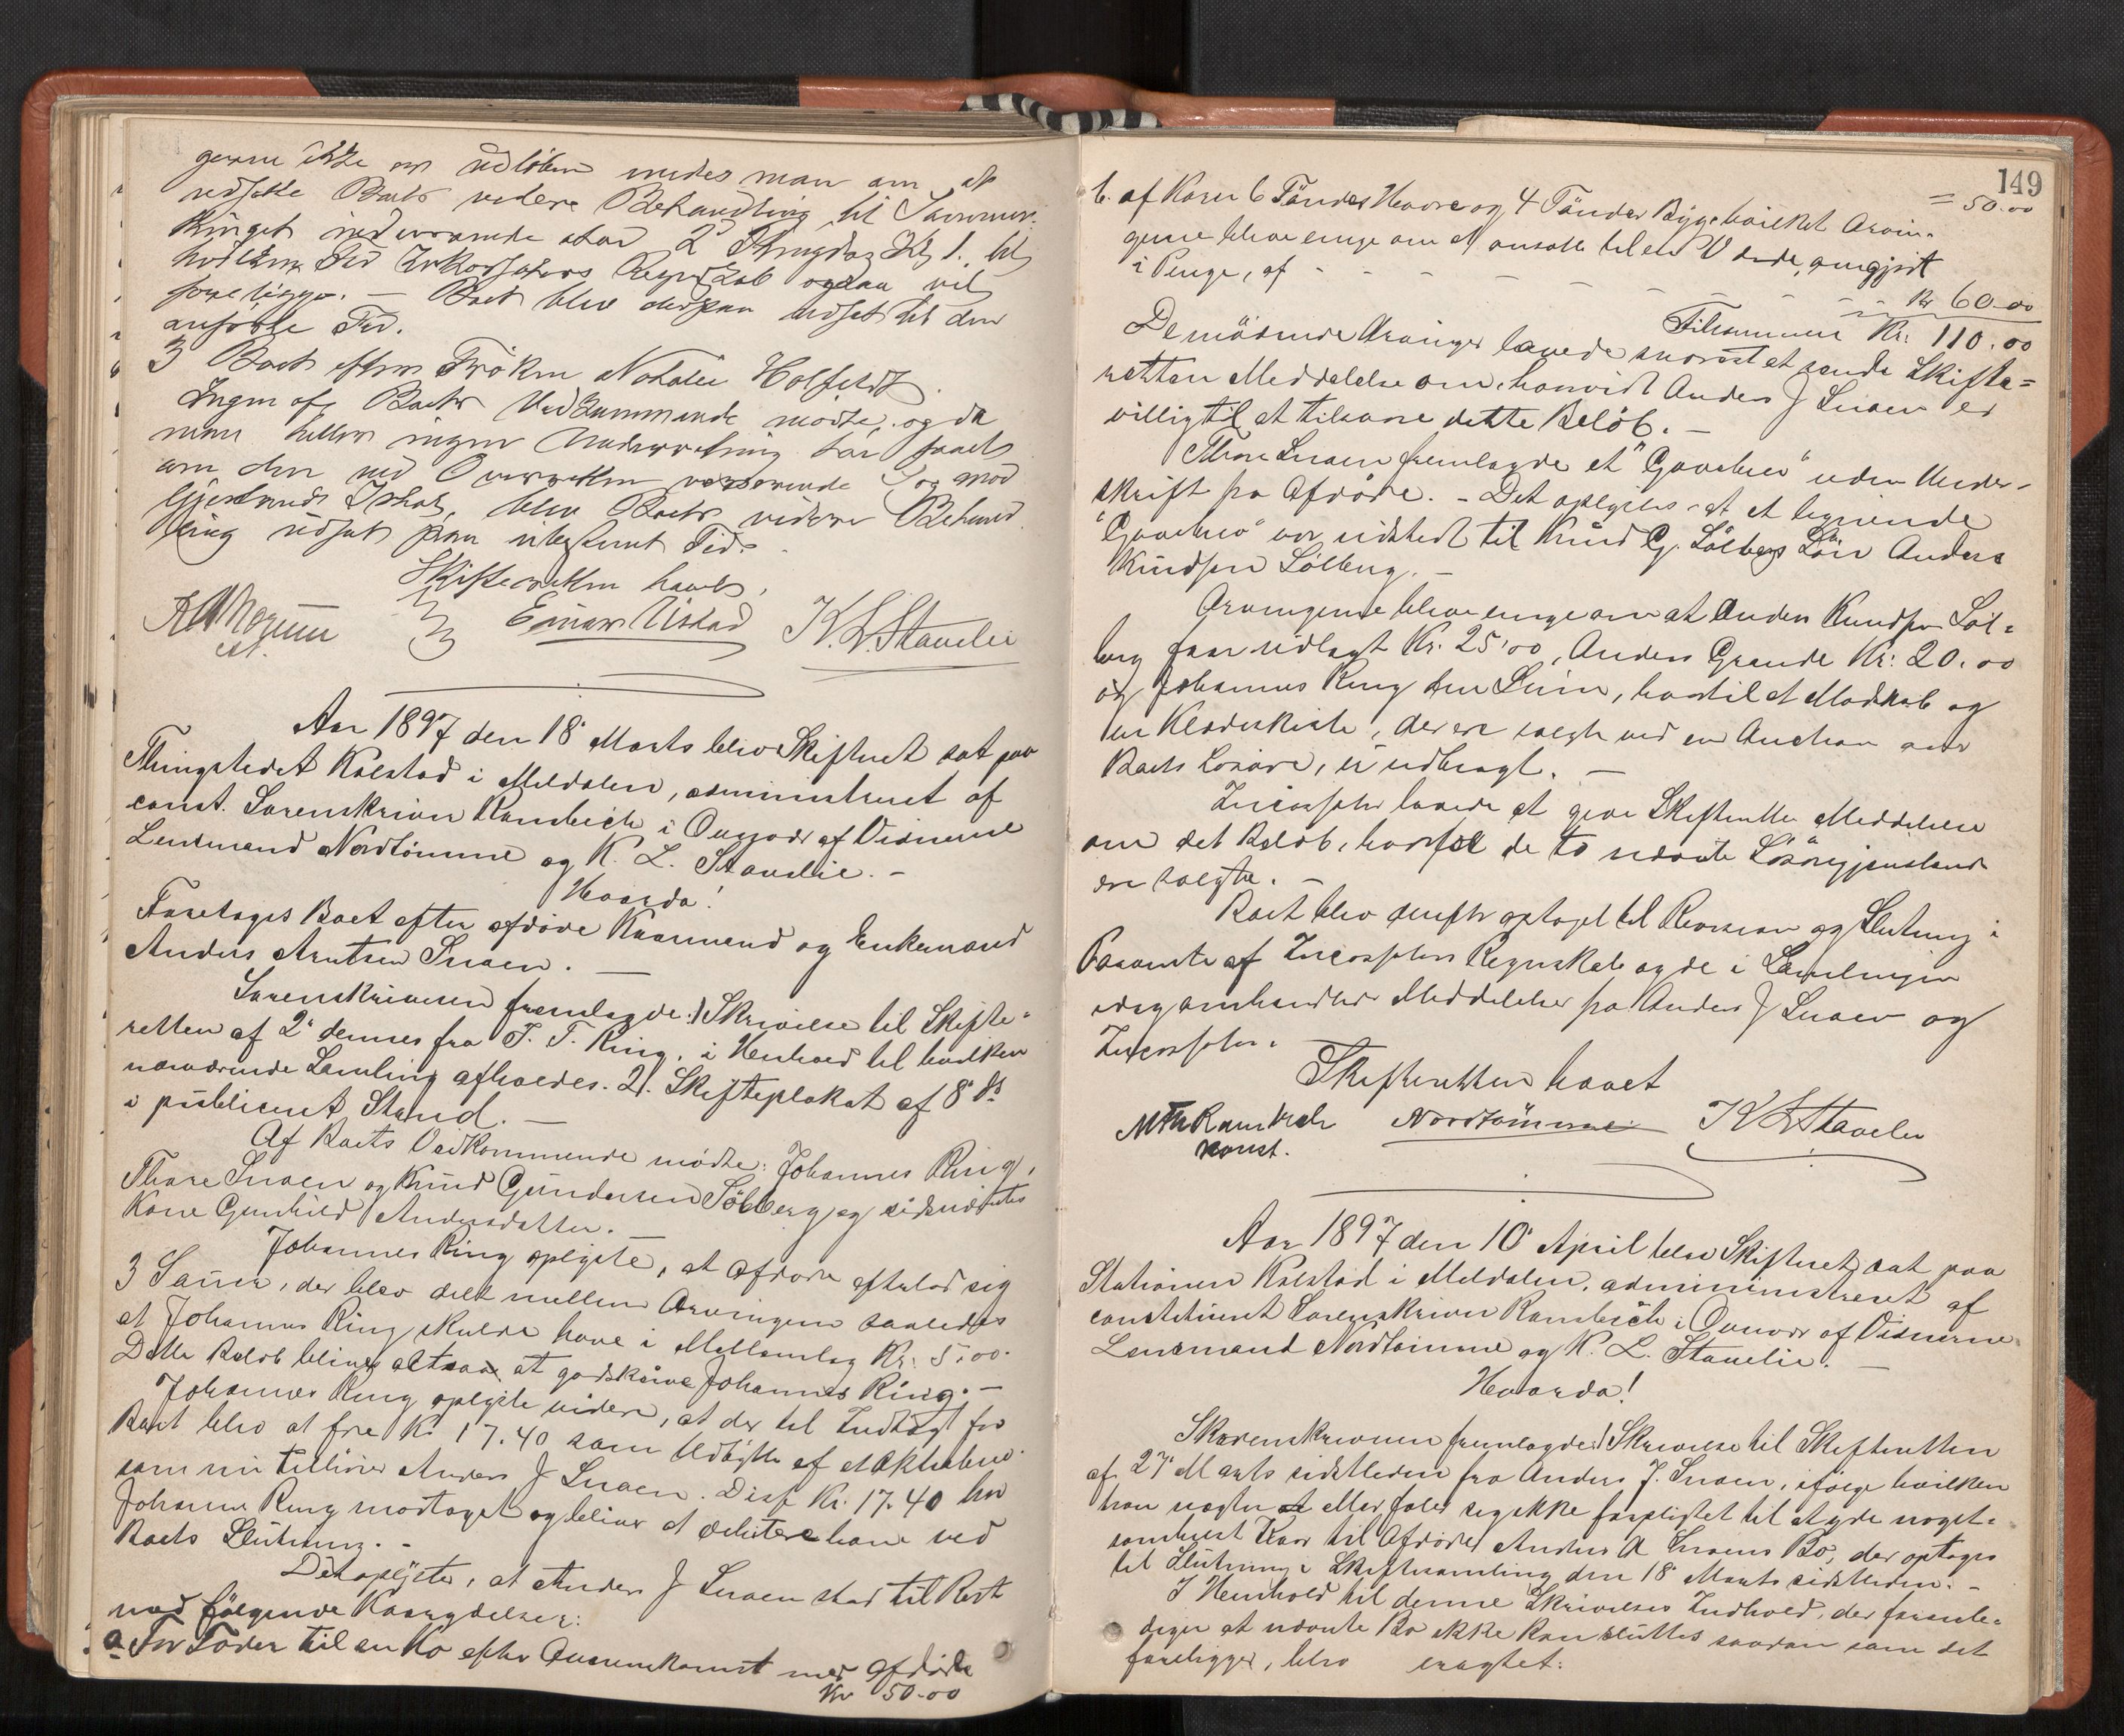 gerne ikke er udløben enedes man om at
udsætte Boets videre Behandling til Sommer-
thinget indeværende Aar 2 Thingdag Kl 1. til
hvilken Tid Inkassators Regnskab ogsaa vil
foreligge. — Boet blev derpaa udsat til den
anførte Tid.
3 Boet efter Frøken Natalie Holfeldt.
Ingen af Boets Vedkommende mødte, og da
man heller ingen Underretning har faaet
om den ved Overretten verserende Sag mod
blev Boets videre Behand-
ling udsat paa ubestemt Tid.
Skifteretten hævet,
Einar Uskad K. L. Stavelie
Aar 1897 den 18' Marts blev Skifteret sat paa
Thingstedet Kalstad i Meldalen, administreret af
const. Sorenskriver Rambech i Overvær af Vidnerne
Lensmand Nordtømme og K. L. Stavelie. —
Hvorda!
Foretoges Boet efter afdøde Kaarmand og Enkemand
Anders Arntsen Snoen. —
Sorenskriveren fremlagde: 1) Skrivelse til Skifte-
retten af 2' dennes fra J. T. Ring, i Henhold til hvilken
nærværende Samling afholdes. 2). Skifteplakat af 8' ds
i publiceret Stand. —
Af Boets Vedkommende mødte: Johannes Ring,
Thore Snoen og Knud Gundersen Sølberg og sidstnævntes
Kone Gunhild Andersdatter. —
Johannes Ring oplyste, at afdøde efterlod sig
3 Sauer, der blev delt mellem Arvingerne saaledes
at Johannes Ring skulde have i Mellemlag Kr. 5.00.
Dette Beløb bliver altsaa at godskrive Johannes Ring. —
Johannes Ring oplyste videre, at der til Indtægt for
Boet blev at føre Kr 17.40 som Udbytte af
som nu tilhører Anders J Snoen. Disse Kr. 17.40 har
Johannes Ring modtaget og bliver at debitere ham ved
Boets Slutning. —
Det oplystes, at Anders J Snoen stod til Rest
med følgende Kaarydelser:
a For Foder til en Ko efter Overenskomst med afdøde
Kr 50.00
149
= 50.00
b. af Korn 6 Tønder Havre og 4 Tønder Byg, hvilket Arvin-
gerne bleve enige om at ansætte til en Værdi, omgjort
i Penge, af - - - - - - - Kr 60.00
Tilsammen Kr. 110.00
De mødende Arvinger lovede snarest at sende Skifte-
retten Meddelelse om, hvorvidt Anders J Snoen er
villig til at tilsvare dette Beløb. —
Thore Snoen fremlagde et "Gavebrev" uden Under-
skrift fra Afdøde. - Det oplystes at et lignende
"Gavebrev" var udstedt til Knud G. Sølbergs Søn Anders
Knudsen Sølberg. —
Arvingerne bleve enige om at Anders Knudsen Søl-
berg faar udlagt Kr. 25.00, Anders Grande Kr. 20.00
og Johannes Ring den Sum, hvortil et Madskab og
en Klædeskiste, der ere solgte ved en Auction over
Boets Løsøre, er udbragt. —
Incassator lovede at give Skifteretten Meddelelse
om det Beløb, hvorfor de to nævnte Løsøregjenstande
ere solgte. —
Boet blev derefter optaget til Revision og Slutning i
Paavente af Incassators Regnskab og de i Samlingen
idag omhandlede Meddelelser fra Anders J Snoen og
Incassator.
Skifteretten hævet
M Th Rambech Nordtømme K L Stavelie
const.
Aar 1897 den 10' April blev Skifteret sat paa
Stationen Kalstad i Meldalen, administreret af
constitueret Sorenskriver Rambech i Overvær af Vidnerne
Lensmand Nordtømme og K. L. Stavelie. —
Hvorda!
Skorenskriveren fremlagde 1) Skrivelse til Skifteretten
af 27' Marts sidstleden fra Anders J. Snoen, ifølge hvilken
han nægter at eller føler sig ikke forpligtet til at yde noget-
somhelst Kaar til Afdøde Anders A Snoens Bo, der optoges
til Slutning i Skiftesamling den 18' Marts sidstleden. —
I Henhold til denne Skrivelses Indhold, der foranle-
diger at nævnte Bo ikke kan sluttes saadan som det
foreligger, blev eragtet: